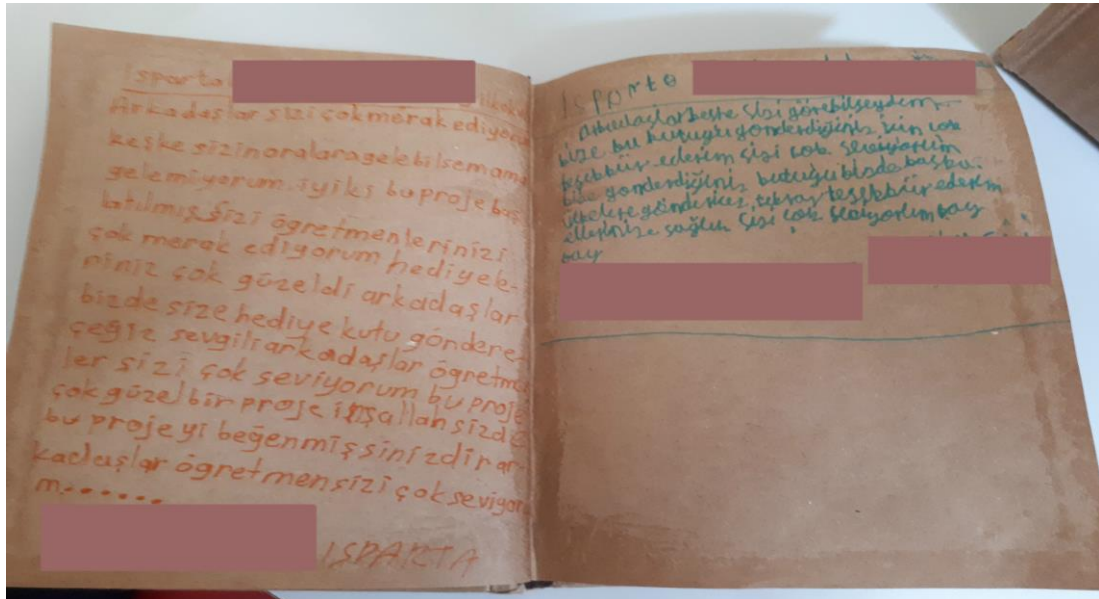 Isparta ilkokulu
Arkadaşlar sizi çok merak ediyoru
keşke sizin oralara gelebilsem ama
gelemiyorum. iyiki bu proje baş
latılmış sizi ögretmenlerinizi
çok merak ediyorum hediyele-
riniz çok güzeldi arkadaşlar
bizde size hediye kutu göndere-
çeğiz sevgili arkadaşlar ögretme
ler sizi çok seviyorum bu proje
çok güzel bir proje inşallah sizde
bu projeyi beğenmişsinizdir ar-
kadaşlar ögretmen sizi çok seviyor
m.......
ISPARTA
Isparta
arkadaşlar keşke sizi görebilseydim.
bize bu kutuyu gönderdiğiniz için çok
teşebbür ederim sizi çok seviyorum
bize gönderdiğiniz kutuyu bizde başka
ülkelere göndericez tekrar teşebbür ederim
ellerinize sağlık sizi çok seviyorum bay
bay